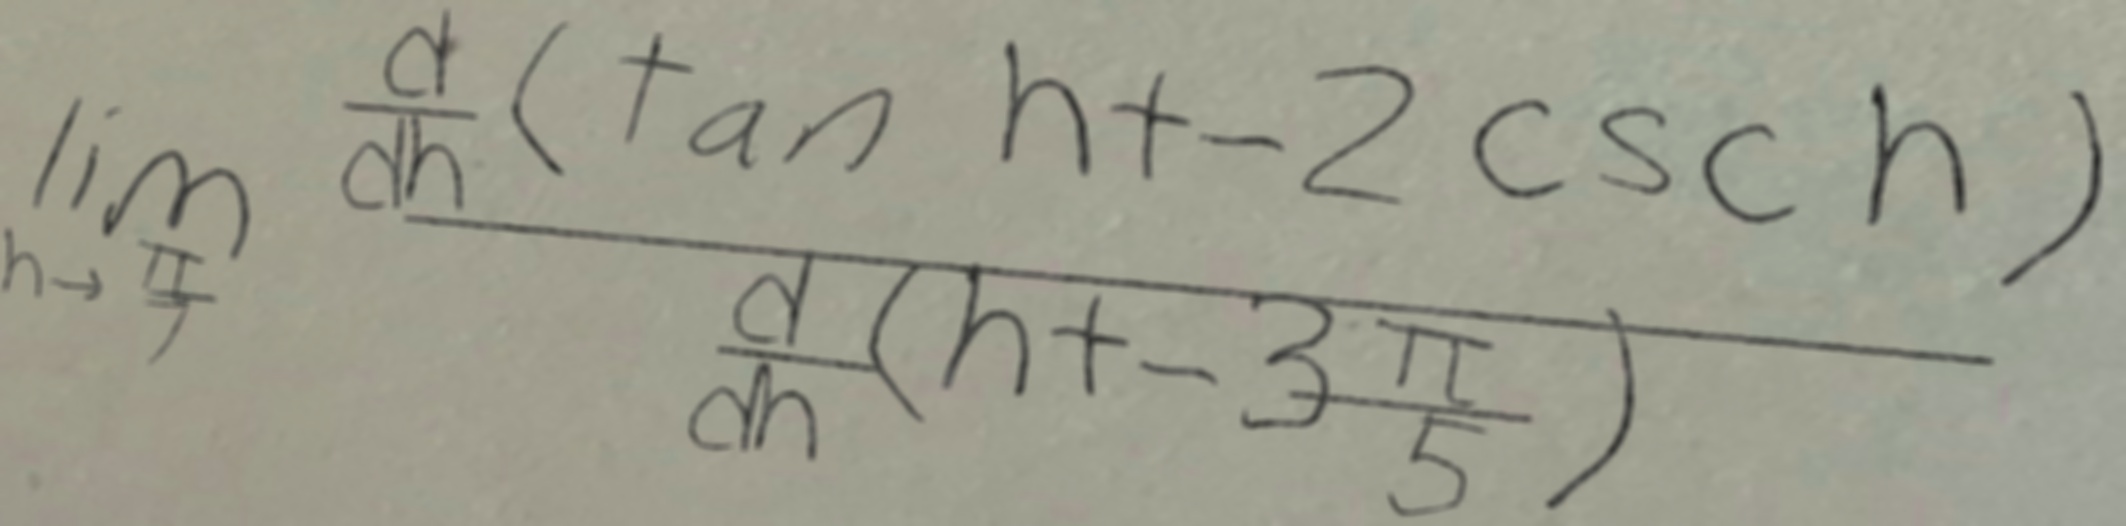 \lim_{h \to \frac{\pi}{7}} \frac{\frac{d}{dh}(\tan ht - 2 \csc h)}{\frac{d}{dh}(ht - 3\frac{\pi}{5})}